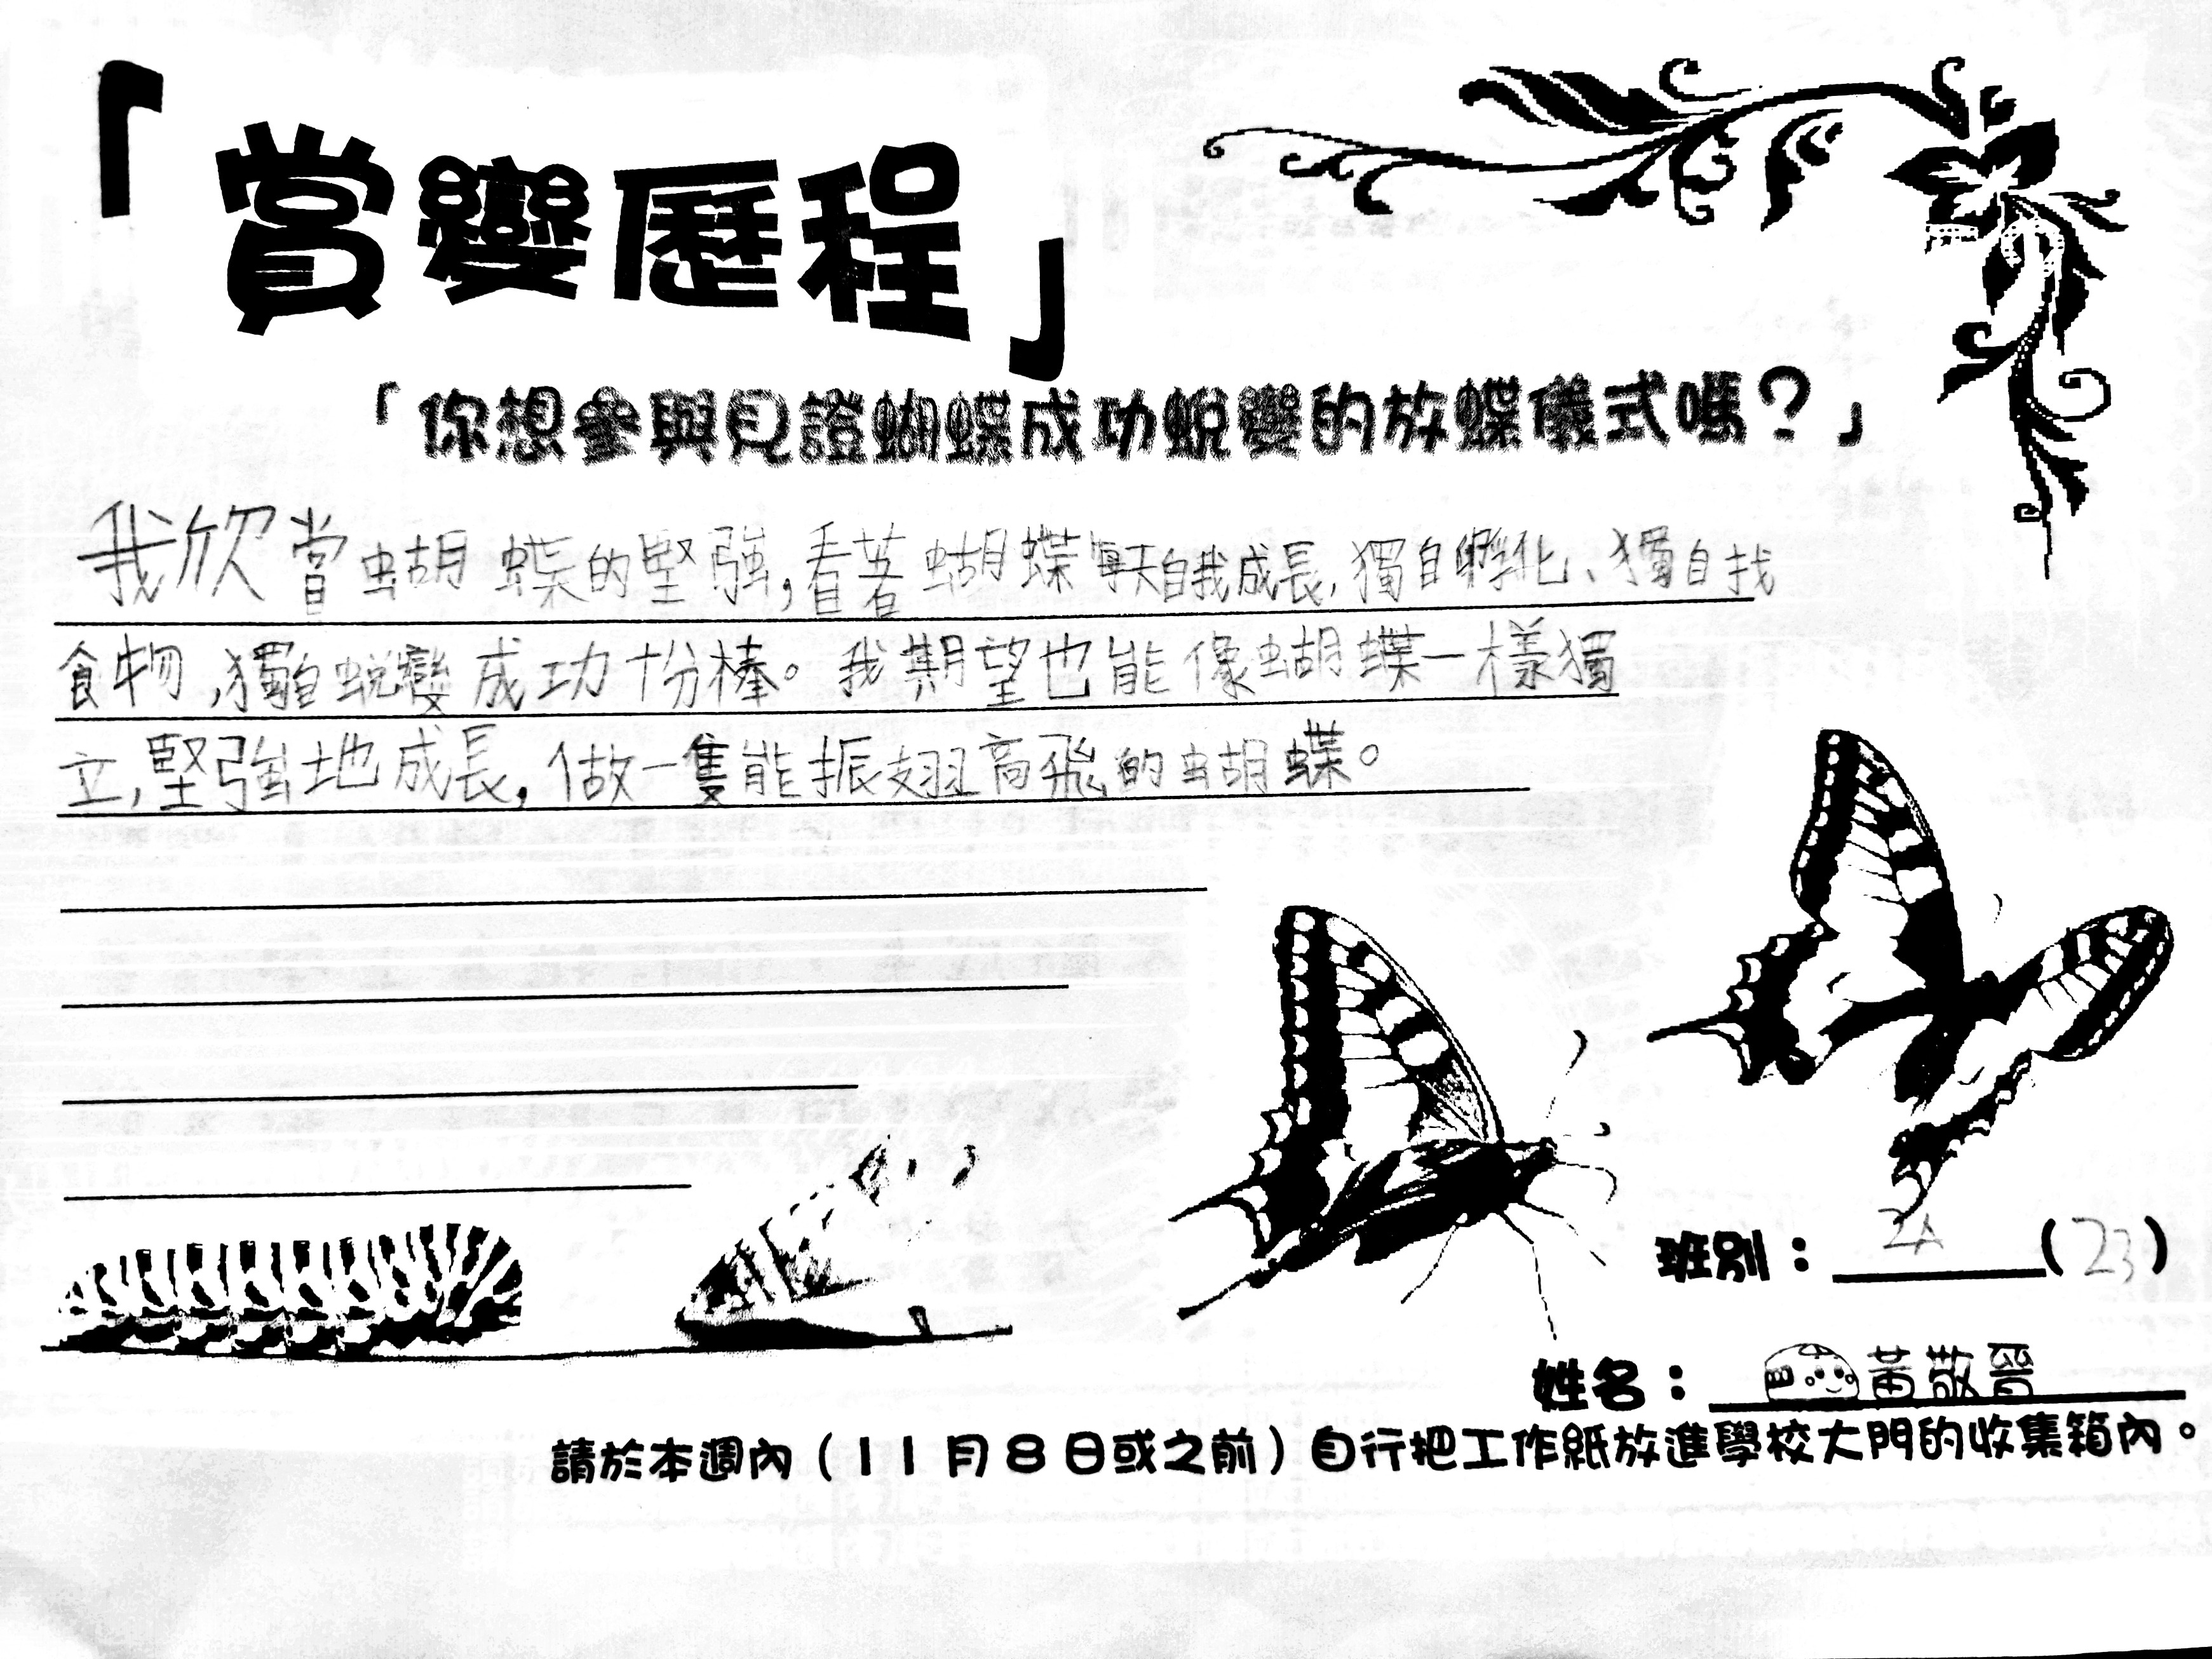 「賞變歷程」
「你想參與見證蝴蝶成功蛻變的放蝶儀式嗎？」
我欣賞蝴蝶的堅強，看著蝴蝶每天自我成長，獨自孵化、獨自找
食物，獨自蛻變成功十份棒。我期望也能像蝴蝶一樣獨
立，堅強地成長，做一隻能振翅高飛的蝴蝶。
班別：2A(23)
姓名：黃敬晉
請於本週內（11月8日或之前）自行把工作紙放進學校大門的收集箱內。